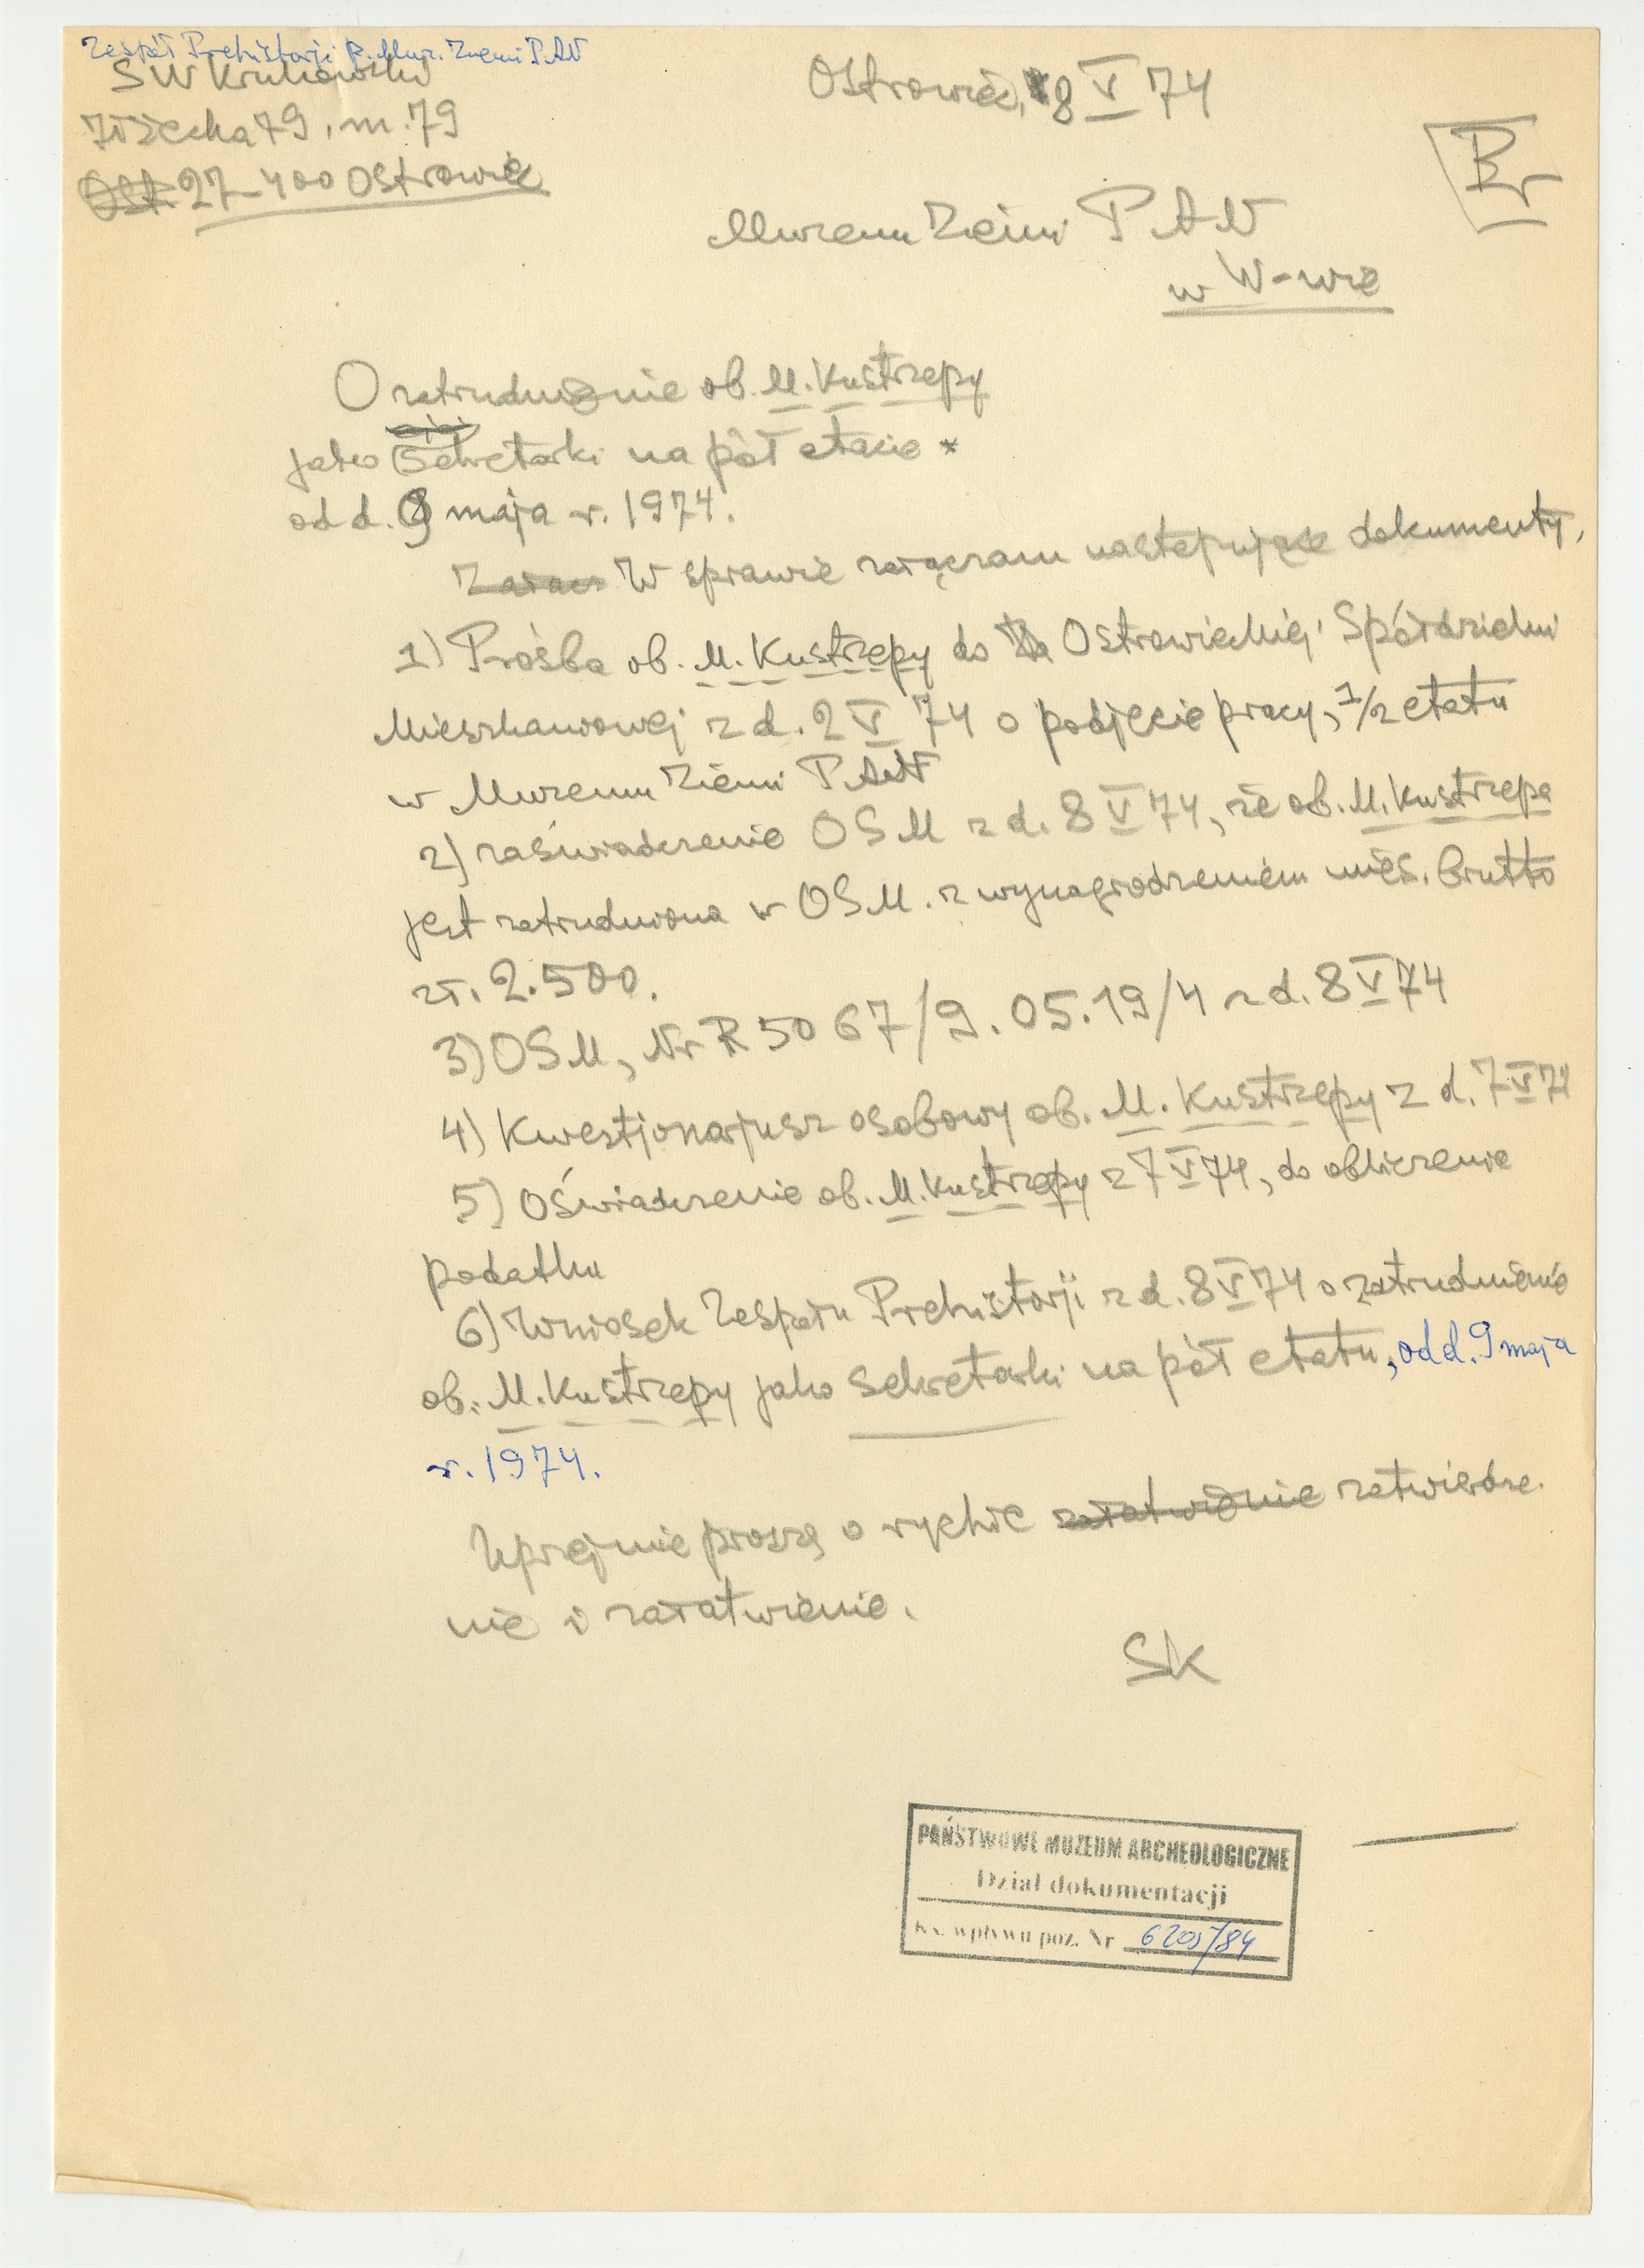 Zespół Prehistorji p. Muz. Ziemi PAN
SW Krukowski
79, m. 79
27-400 Ostrowiec
Ostrowiec, 8 V 74
Br
Muzeum Ziemi PAN
w W-wie
O zatrudnienie ob. M. Kustrzepy
jako Sekretarki na pół etacie *
od d. 9 maja r. 1974.
W sprawie załączam następujące dokumenty,
1) Prośba ob. M. Kustrzepy do Ostrowieckiej Spółdzielni
Mieszkaniowej z d. 2 V 74 o podjęcie pracy, 1/2 etatu
w Muzeum Ziemi PAN
2) zaświadczenie OSM z d. 8 V 74, że ob. M. Kustrzepa
jest zatrudniona w OSM. z wynagrodzeniem mies. brutto
zł. 2.500.
3) OSM, Nr R 5067/9.05.19/4 z d. 8 V 74
4) Kwestjonarjusz osobowy ob. M. Kustrzepy z d. 7 V 74
5) Oświadczenie ob. M. Kustrzepy z 7 V 74, do obliczenia
podatku
6) Wniosek Zespołu Prehistorji z d. 8 V 74 o zatrudnienie
ob. M. Kustrzepy jako Sekretarki na pół etatu, od d. 9 maja
r. 1974.
Uprzejmie proszę o rychłe załatwienie zatwierdze-
nie i załatwienie.
SK
PAŃSTWOWE MUZEUM ARCHEOLOGICZNE
Dział dokumentacji
Ks. wpływu poz. Nr 6205/84